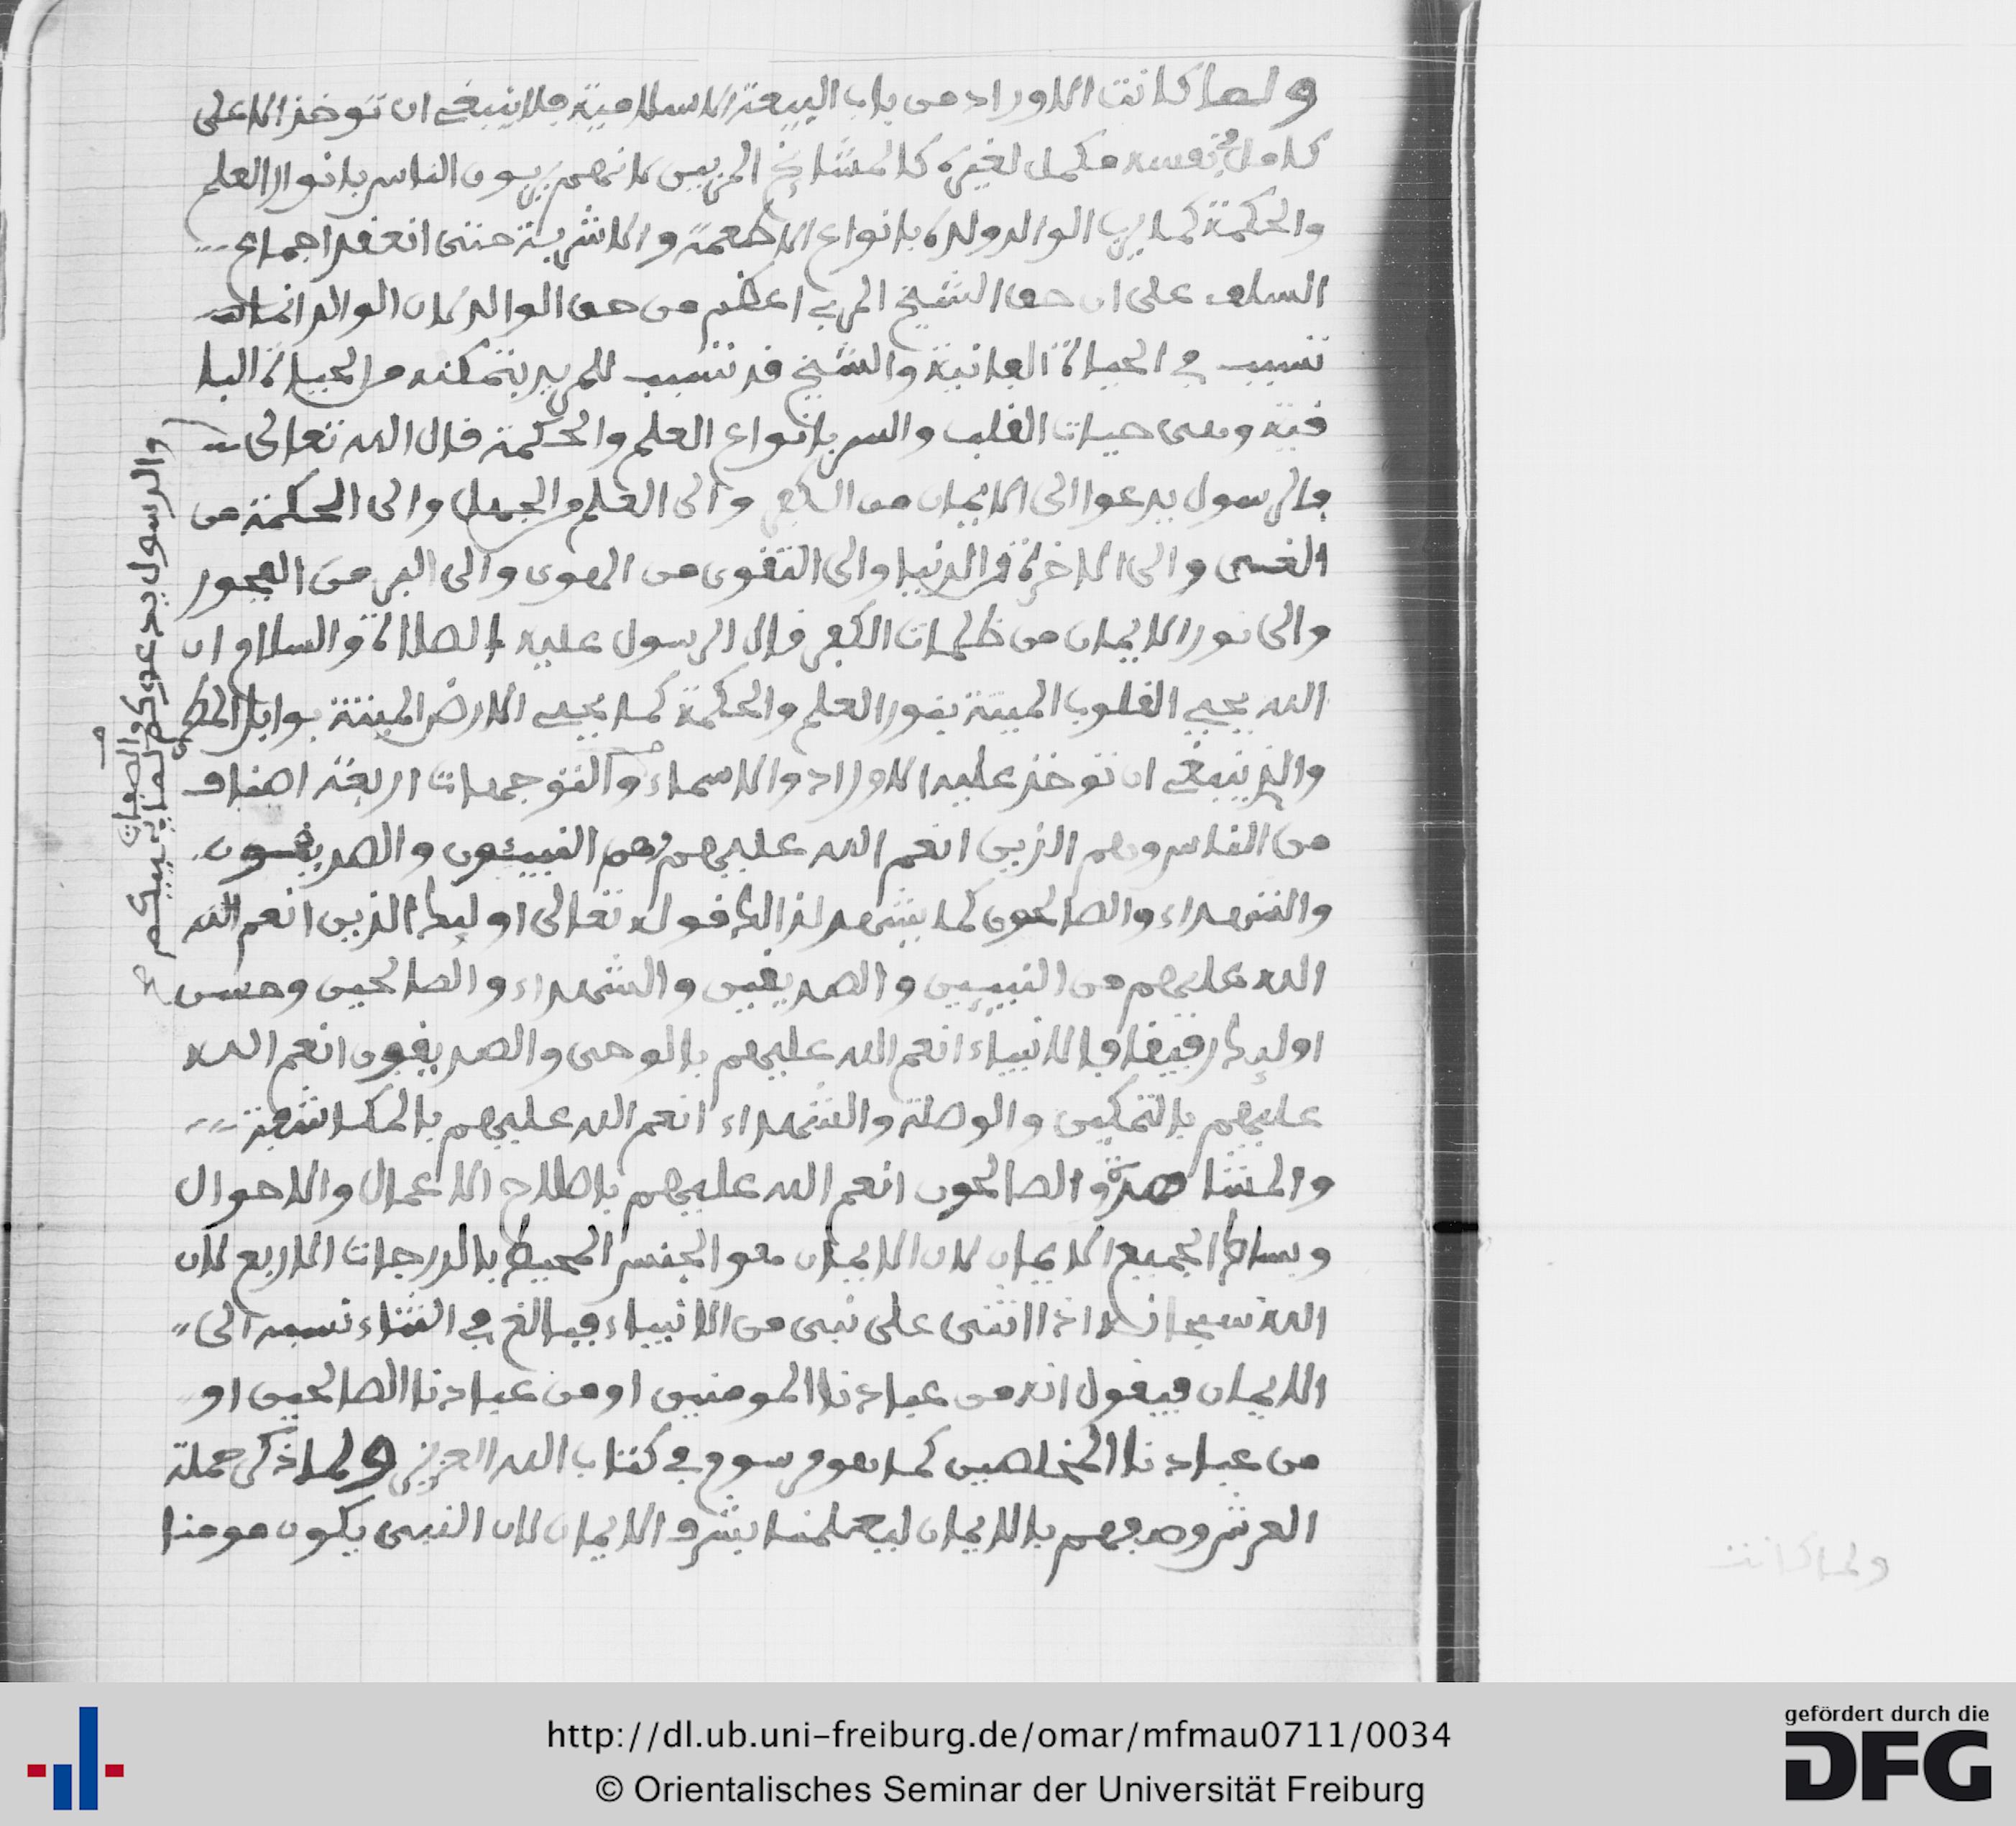 ولما كانت الاوراد من باب البيعة الاسلامية فلا ينبغي ان توخذ الا على
كامل في نفسه مكمل لغيره كالمشايخ المربين لانهم يربون الناس بانوار العلم
والحكمة كما يربي الوالد ولده بانواع الاطعمة والاشربة حتى انعقد اجماع
السلف على ان حق الشيخ المربي اعظم من حق الوالد لان الوالد انما
تسبب في الحياة الفانية والشيخ قد تسبب للمريد بتمكنه من الحياة البا
قية وهى حيات القلب والسر بانواع العلم والحكمة قال الله تعالى
فالرسول يدعوا الى الايمان من الكفر والى العلم من الجهل والى الحكمة من
والى الاخرة من الدنيا والى التقوى من الهوى والى البر من الفجور
والى نور الايمان من ظلمات الكفر قال الرسول عليه الصلاة والسلام ان
الله يحيي القلوب الميتة بنور العلم والحكمة كما يحيي الارض الميتة بوابل المطر
والذي ينبغي ان توخذ عليه الاوراد والاسماء والتوجهات اربعة اصناف
من الناس وهم الذين انعم الله عليهم وهم النبيئون والصديقون
والشهداء والصالحون كما يشهد لذالك قوله تعالى اوليك الذين انعم الله
الله عليهم من النبيين والصديقين والشهداء والصالحين وحسن
اوليك رفيقا فالانبياء انعم الله عليهم بالوحى والصديقون انعم الله
عليهم بالتمكين والوصلة والشهداء انعم الله عليهم بالمكاشفة
والمشاهدة والصالحون انعم الله عليهم باصلاح الاعمال والاحوال
الجميع الايمان لان الايمان هو الجنس المحيط بالدرجات الاربع لان
الله سبحانه اذا اثنى على نبى من الانبياء فبالغ في الثناء نسبه الى
الايمان فيقول انه من عبادنا المومنين او من عبادنا الصالحين او
من عبادنا المخلصين كما هو مرسوم في كتاب الله العزيز ولما ذكر حملة
العرش وصفهم بالايمان ليعلمنا بشرف الايمان لان النبى يكون مومنا
والرسول يدعوكم لما يحييكم
والصفات
ولما كانت
http://dl.ub.uni-freiburg.de/omar/mfmau0711/0034
© Orientalisches Seminar der Universität Freiburg
gefördert durch die
DFG